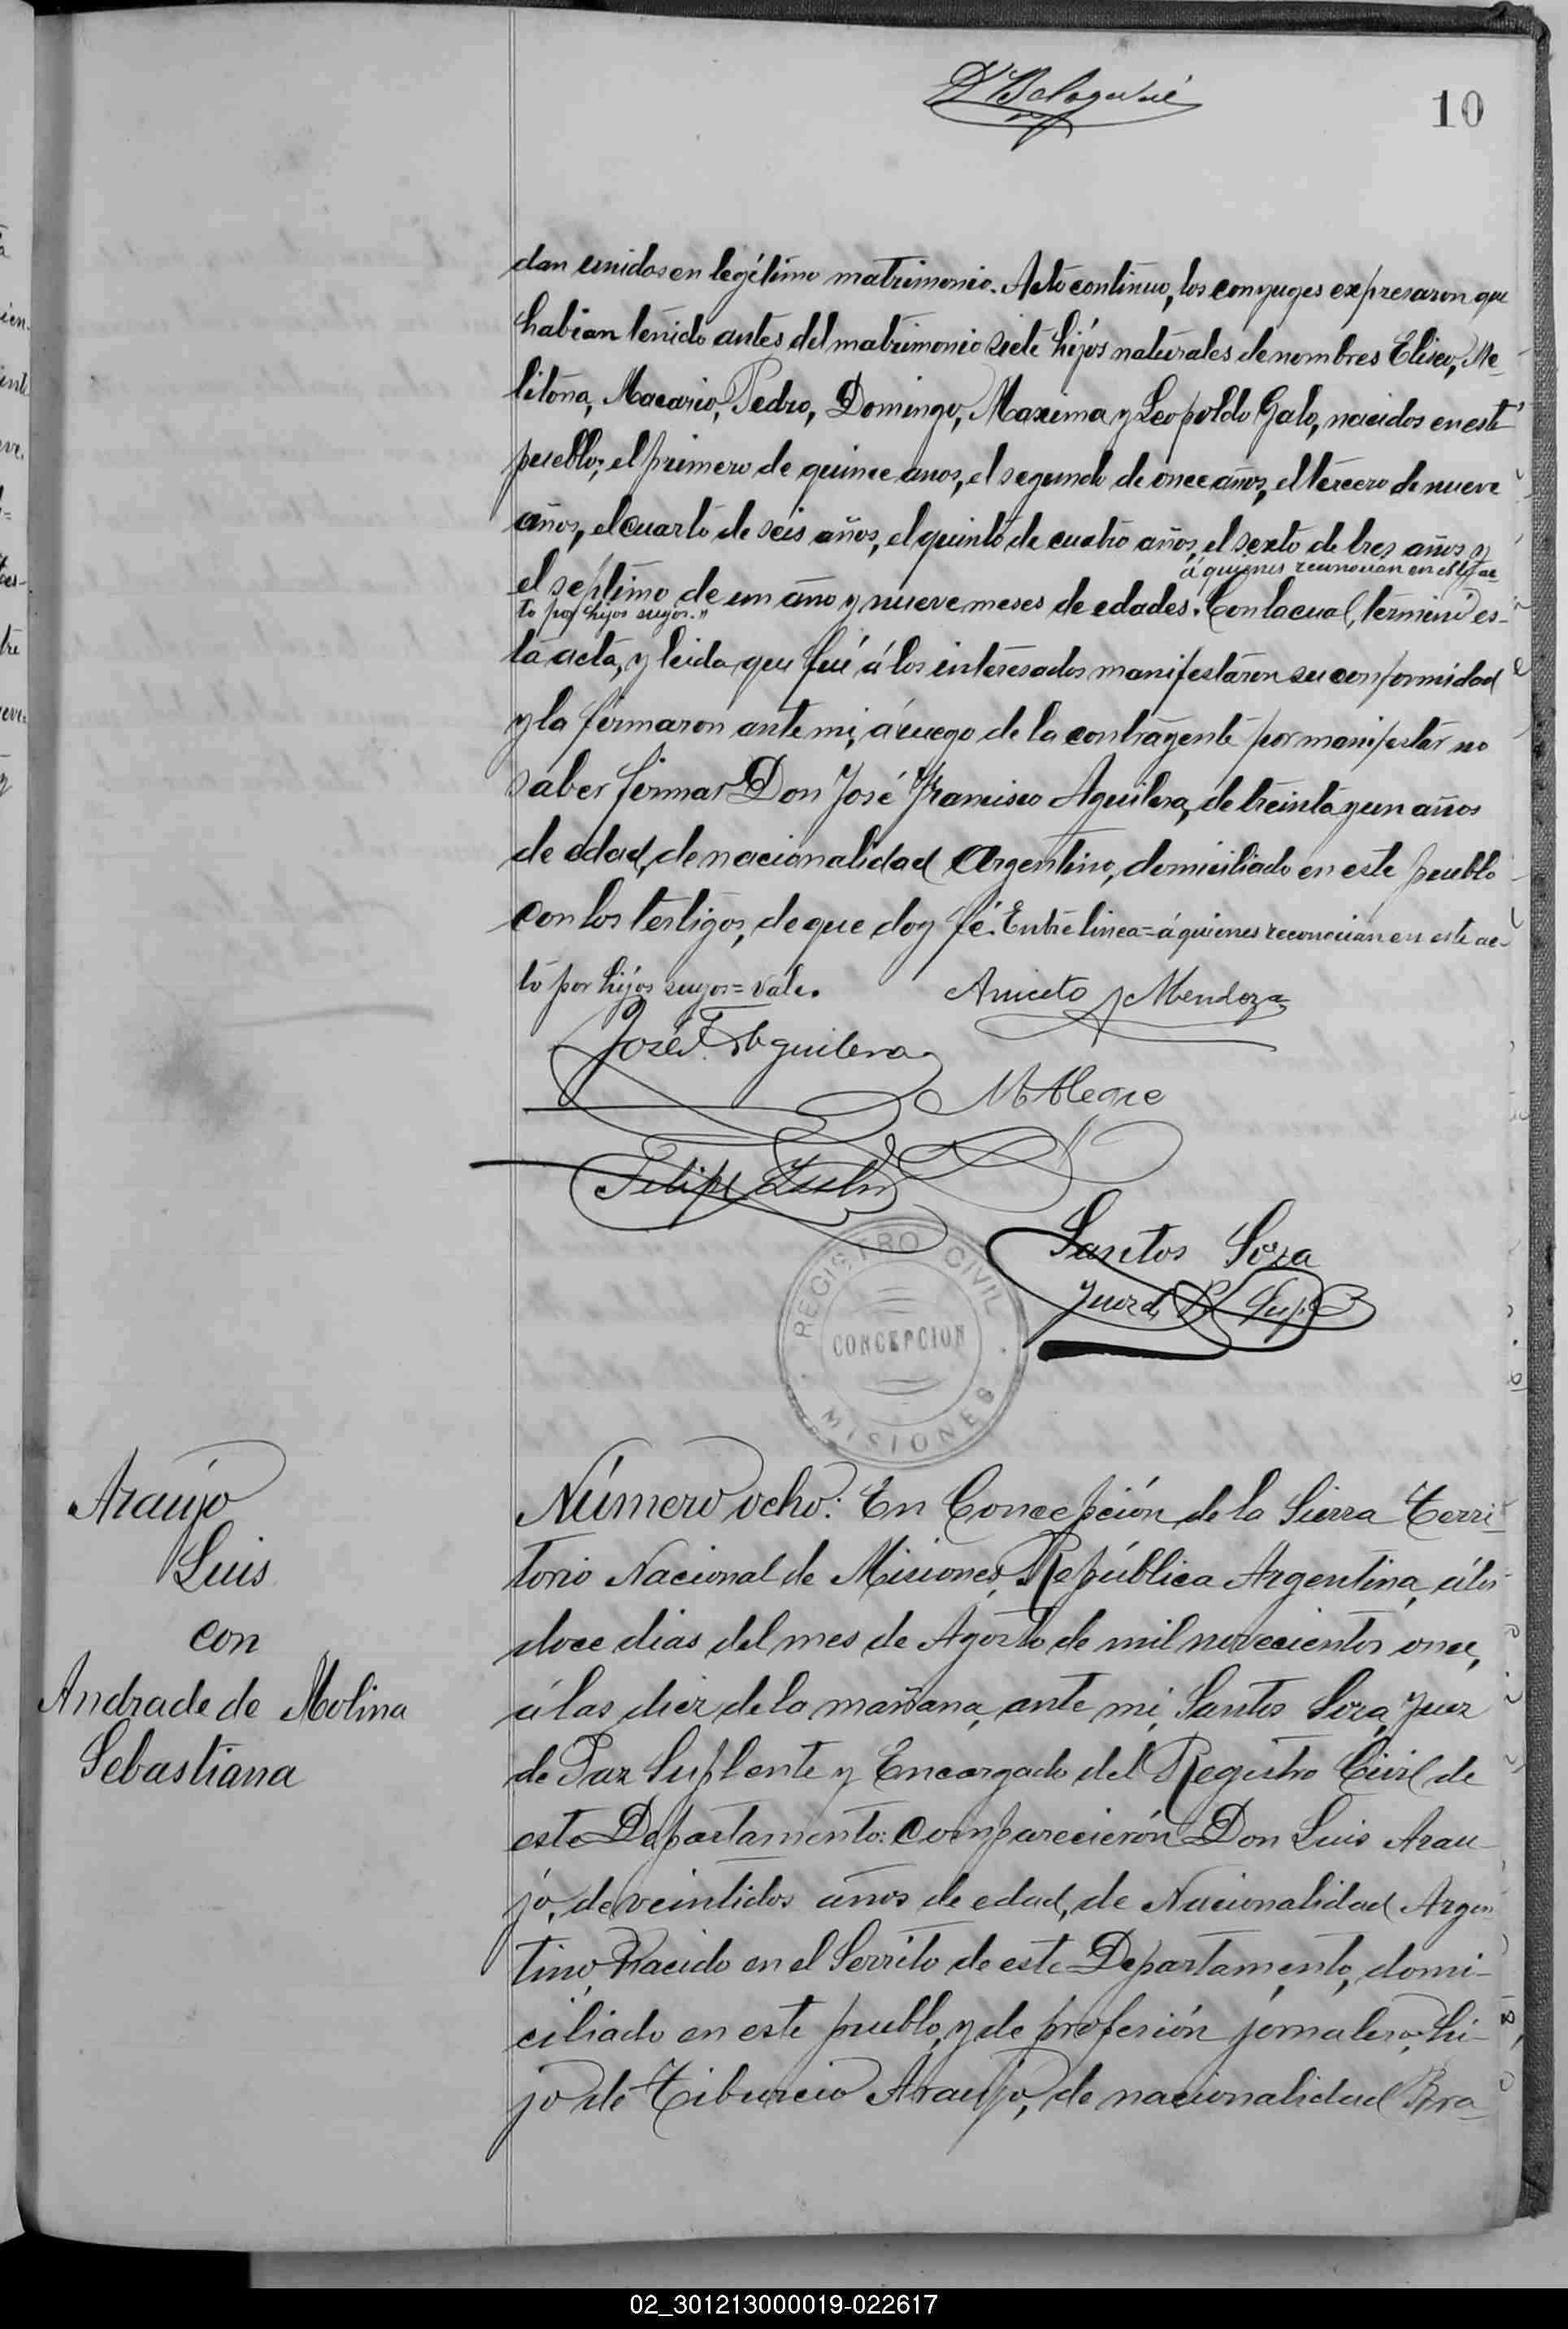 10
dan unidos en legítimo matrimonio. Acto continuo, los conyuges expresaron que
habian tenido antes del matrimonio siete hijos naturales de nombres Eliseo, Me-
litona, Macario, Pedro, Domingo, Maxima y Leopoldo Galo, nacidos en este
pueblo; el primero de quince anos, el segundo de once años, el tercero de nueve
años, el cuarto de seis años, el quinto de cuatro años, el sexto de tres años y
á quienes reconocian en este ac-
el septimo de un año y nueve meses de edades. Con la cual, terminó es-
to por hijos suyos."
ta acta, y leida que fué á los interesados manifestaron su conformidad
y la firmaron ante mi, á ruego de la contrayente por manifestar no
saber firmar Don José Francisco Aguilera, de treinta y un años
de edad, de nacionalidad Argentino, domiciliado en este pueblo
con los testigos, de que doy fé. Entre linea = á quienes reconocian en este ac-
to por hijos suyos = vale.
Aniceto Mendoza
José F. Aguilera
M Alegre
Felipe
Santos Soza
Juez de P. Sup.
REGISTRO CIVIL
CONCEPCION
MISIONES
Araujo
Luis
con
Andrade de Molina
Sebastiana
Número ocho: En Concepción de la Sierra Terri-
torio Nacional de Misiones, República Argentina, á los
doce dias del mes de Agosto de mil novecientos once,
á las diez de la mañana, ante mi, Santos Soza, Juez
de Paz Suplente y Encargado del Registro Civil de
este Departamento: comparecierón Don Luis Arau-
jo, de veintidos años de edad, de Nacionalidad Argen-
tino, Nacido en el Serrito de este Departamento, domi-
ciliado en este pueblo, y de profesión jornalero, hi-
jo de Tiburcio Araujo, de nacionalidad Bra-
02_301213000019-022617